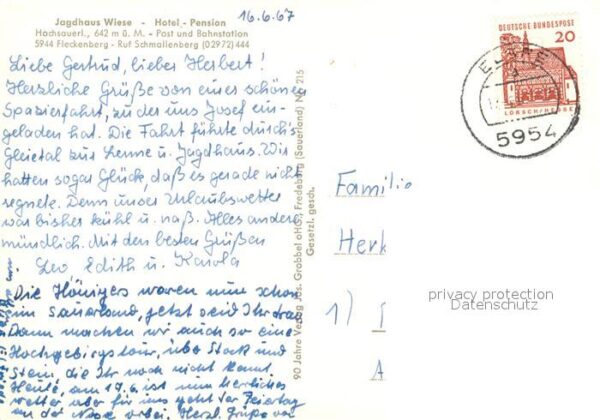 Jagdhaus Wiese - Hotel - Pension
Hochsauerl., 642 m ü. M. - Post und Bahnstation
5944 Fleckenberg - Ruf Schmallenberg (02972) 444
16.6.67
Liebe Gertrud, lieber Herbert!
Herzliche Grüße von einer schönen
Spazierfahrt, zu der uns Josef ein-
geladen hat. Die Fahrt führte durch's
zur Lenne u. Jagdhaus. Wir
hatten sogar Glück, daß es gerade nicht
regnete. Denn unser Urlaubswetter
war bisher kühl u. naß. Alles andere
mündlich. Mit den besten Grüßen
Leo Edith u. Karola
Die waren nun schon
im Sauerland, jetzt seid Ihr dran
Dann machen wir auch so eine
Hochgebirgstour, über Stock und
Stein, die Ihr noch nicht kennt.
Heute, am 17.6. ist nun herrliches
Wetter aber für uns geht der Feiertag
an der Nase vorbei. Herzl. Grüße von
90 Jahre Verlag Jos. Grobbel oHG., Fredeburg (Sauerland) Nr. 215
Gesetzl. gesch.
DEUTSCHE BUNDESPOST
20
LORSCH/HESSEN
5954
Familie
Herk
privacy protection
Datenschutz